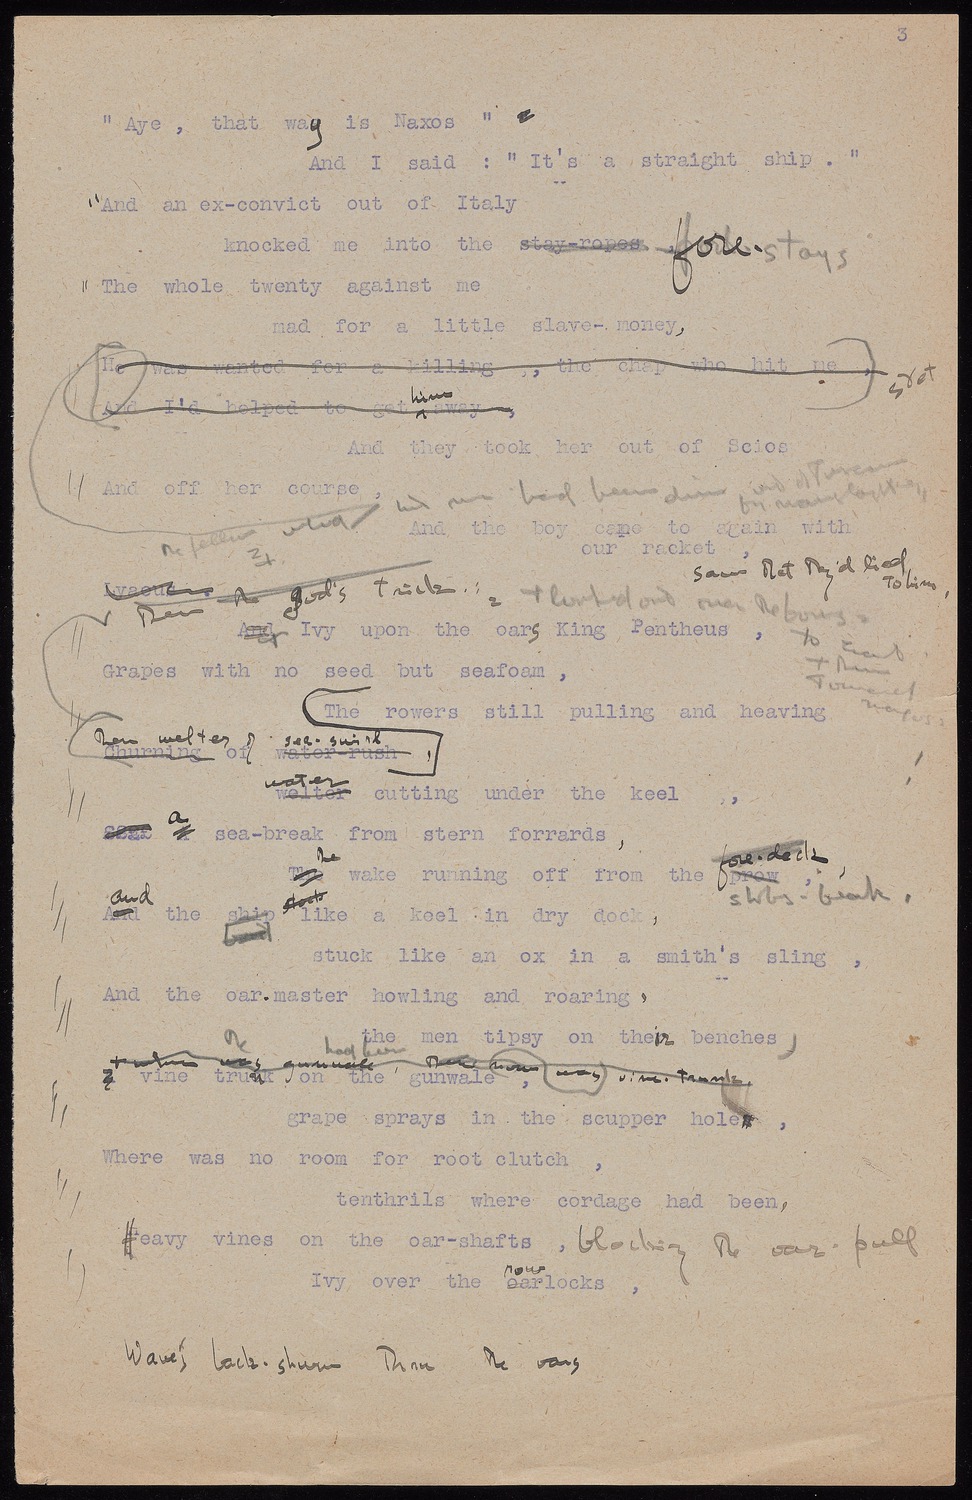 3
" Aye , that way is Naxos "
And I said : " It's a straight ship . "
"And an ex-convict out of Italy
knocked me into the stay-ropes , fore-stays
" The whole twenty against me
mad for a little slave- money,
He was wanted for a killing , , the chap who hit me , stet
him
And I'd helped to get away ,
And they took her out of Scios
And off her course ,
had been
And the boy came to again with
our racket ,
saw that they'd lied
to him,
Lyaeus
Then the god's trick : + looked out over the bows
to
And Ivy upon the oars King Pentheus ,
Grapes with no seed but seafoam ,
The rowers still pulling and heaving
Then welter of sea-swirl
Churning of water-rush ,
water
welter cutting under the keel , ,
a
A sea-break from stern forrards ,
the fore-deck ,
The wake running off from the prow ,
and
And the ship like a keel in dry dock ,
stuck like an ox in a smith's sling ,
And the oar.master howling and roaring ,
the men tipsy on their benches ,
the had been
+ where was gunwale , there now was vine-trunk,
vine trunk on the gunwale ,
grape sprays in the scupper holes ,
Where was no room for root clutch ,
tenthrils where cordage had been,
Heavy vines on the oar-shafts , blocking the oar-pull
row
Ivy over the oarlocks ,
the oars